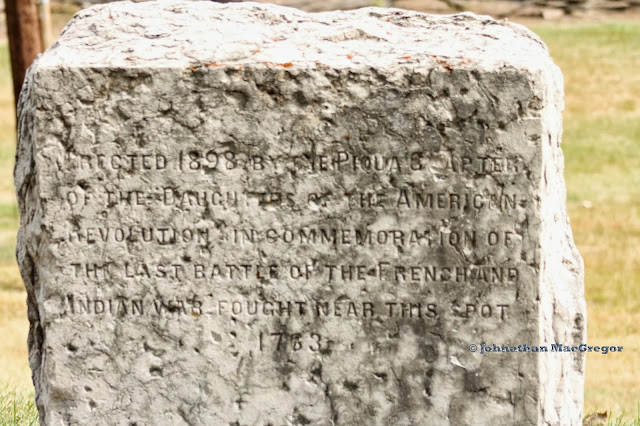 ERECTED 1898 BY THE PIQUA CHAPTER
OF THE DAUGHTERS OF THE AMERICAN
REVOLUTION IN COMMEMORATION OF
THE LAST BATTLE OF THE FRENCH AND
INDIAN WAR FOUGHT NEAR THIS SPOT
1763
© Johnathan MacGregor